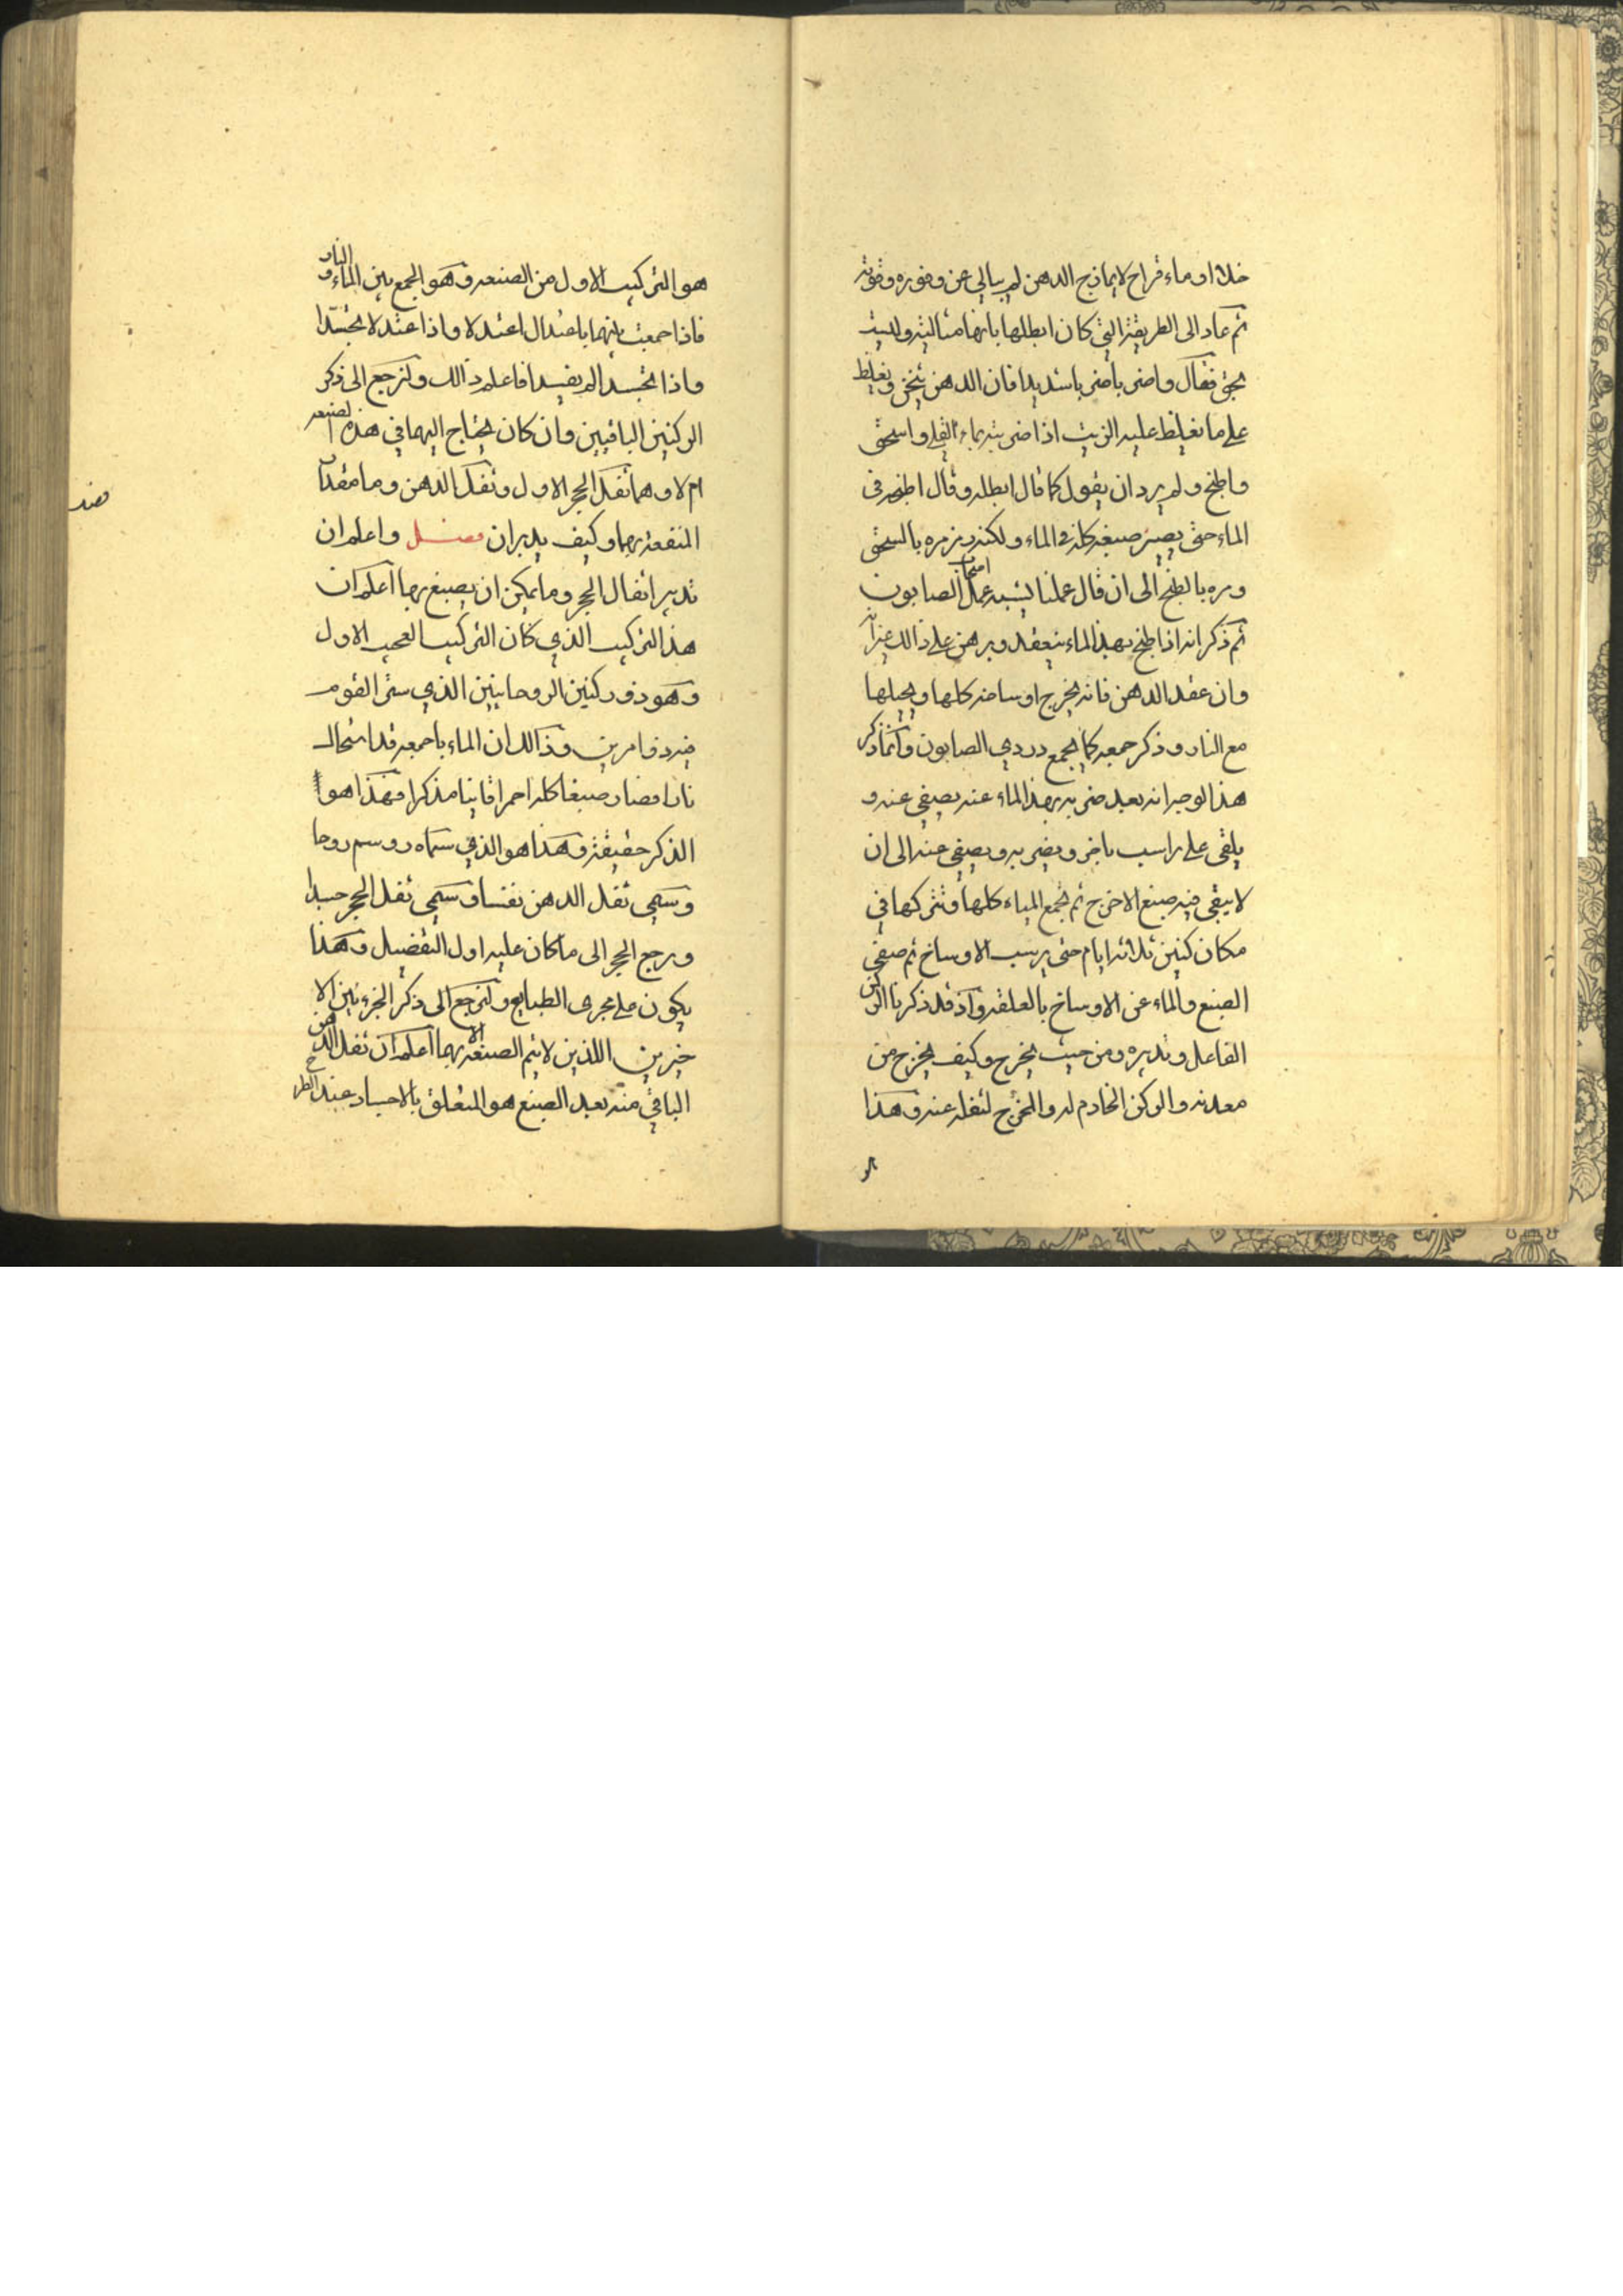 خلا او ماء قراح لا يمازج الدهن لم يبالي عن وفوره وقوته
ثم عاد الى الطريقة التي كان ابطلها بانها مثالية وليست
بحق فقال واضربا ضربا شديدا فان الدهن يثخن ويغلظ
على ما يغلظ عليه الزيت اذا ضربته بماء القلي واسحق
واطبخ ولم يرد ان يقول كما قال ابطله وقال اطبخه في
الماء حتى يصير صبغه كله في الماء ولكنه رمزه بالسحق
ومره بالطبخ الى ان قال عملنا يشبه عمل اصحاب الصابون
ثم ذكر انه اذا طبخ بهذا الماء ينعقد وبرهن على ذالك
وان عقد الدهن فانه يخرج اوساخه كلها ويحيلها
مع النار وذكر جمعه كما يجمع دردي الصابون وانما ذكر
هذا لوجه انه بعد ضربه بهذا الماء عنه يصفى عنه و
يلقى على راسب ماخر ويضربه ويصفى عنه الى ان
لا يبقى فيه صبغ الا خرج ثم تجمع المياه كلها وتتركها في
مكان كنين ثلاثة ايام حتى يرسب الاوساخ ثم صفي
الصبغ والماء عن الاوساخ بالعلقة واذ قد ذكرنا الركن
الفاعل وتدبيره ومن حيث يخرج وكيف يخرج من
معدنه والركن الخادم له والمخرج لثفله عنه وهذا
هو
هو التركيب الاول من الصنعه وهو الجمع بين الماء والنار
فاذا جمعت بينهما باعتدال اعتدلا واذا اعتدلا تجسدا
واذا تجسدا لم يفسدا فاعلم ذالك ولنرجع الى ذكر
الركنين الباقيين وان كان يحتاج اليهما في هذه الصنعه
ام لا وهما ثفل الحجر الاول وثفل الدهن وما مقدار
المنفعة بهما وكيف يدبران فصل واعلم ان
تدبير اثفال الحجر وما يمكن ان يصبغ بها اعلم ان
هذا التركيب الذي كان التركيب العجيب الاول
وهو ذو ركنين الروحانيين الذي ستر القوم
فيه ذو امرين وذالك ان الماء باجمعه قد استحال
نارا فصار صبغا كله احمرا قانيا مذكرا فهذا هو
الذكر حقيقة وهذا هو الذي سماه روسم روحا
وسمى ثفل الدهن نفسا وسمى ثفل الحجر جسدا
ورجع الحجر الى ما كان عليه اول التفصيل وهذا
يكون على مجرى الطبايع ولنرجع الى ذكر الجزءين الا
خيرين اللذين لا يتم الصنعة الا بهما اعلم ان ثفل الدهن
الباقي منه بعد الصبغ هو المتعلق بالاجساد عند الطرح